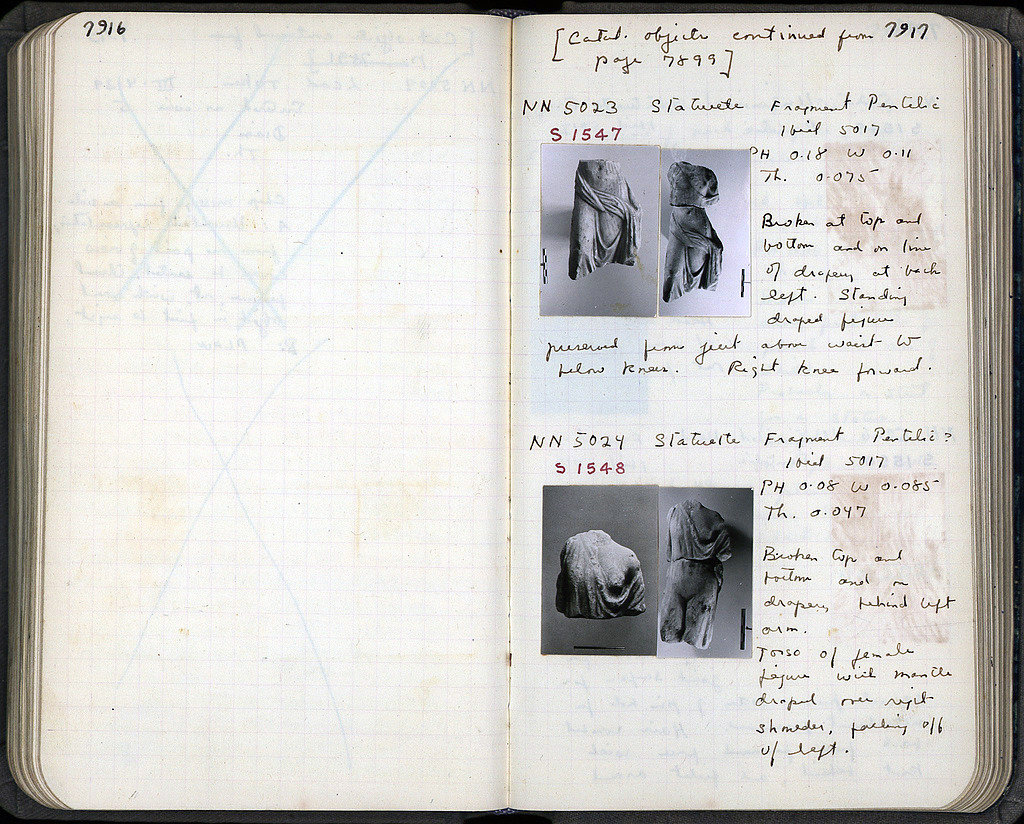 7916
7917
[Catal. objects continued from
page 7899]
NN 5023 Statuette Fragment Pentelic
S 1547
Ibid 5017
PH 0.18 W 0.11
Th. 0.075
Broken at top and
bottom and on line
of drapery at back
left. Standing
draped figure
preserved from just above waist to
below knees. Right knee forward.
NN 5024 Statuette Fragment Pentelic?
S 1548
Ibid 5017
PH 0.08 W 0.085
Th. 0.047
Broken top and
bottom and on
drapery behind left
arm.
Torso of female
figure with mantle
draped over right
shoulder,
left.